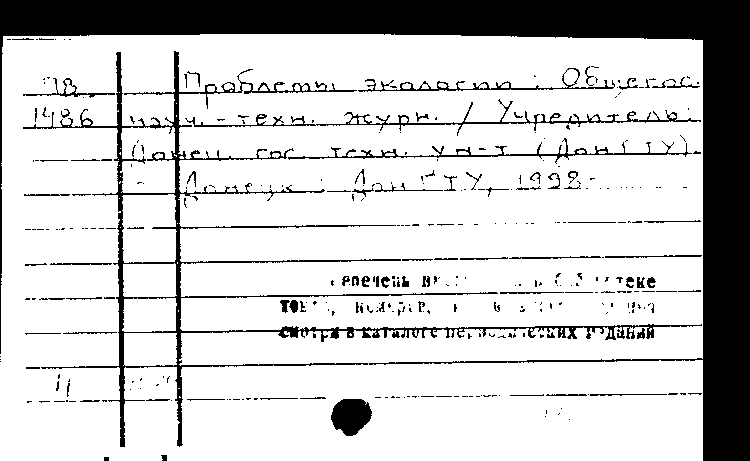 98 Проблемы экологии : Общегос.
1486 науч.-техн. журн. / Учредитель:
Донец. гос. техн. ун-т (ДонГТУ).
- Донецк : ДонГТУ, 1998-
перечень библиотеке
томов, номеров,
смотри в каталоге периодических изданий
11